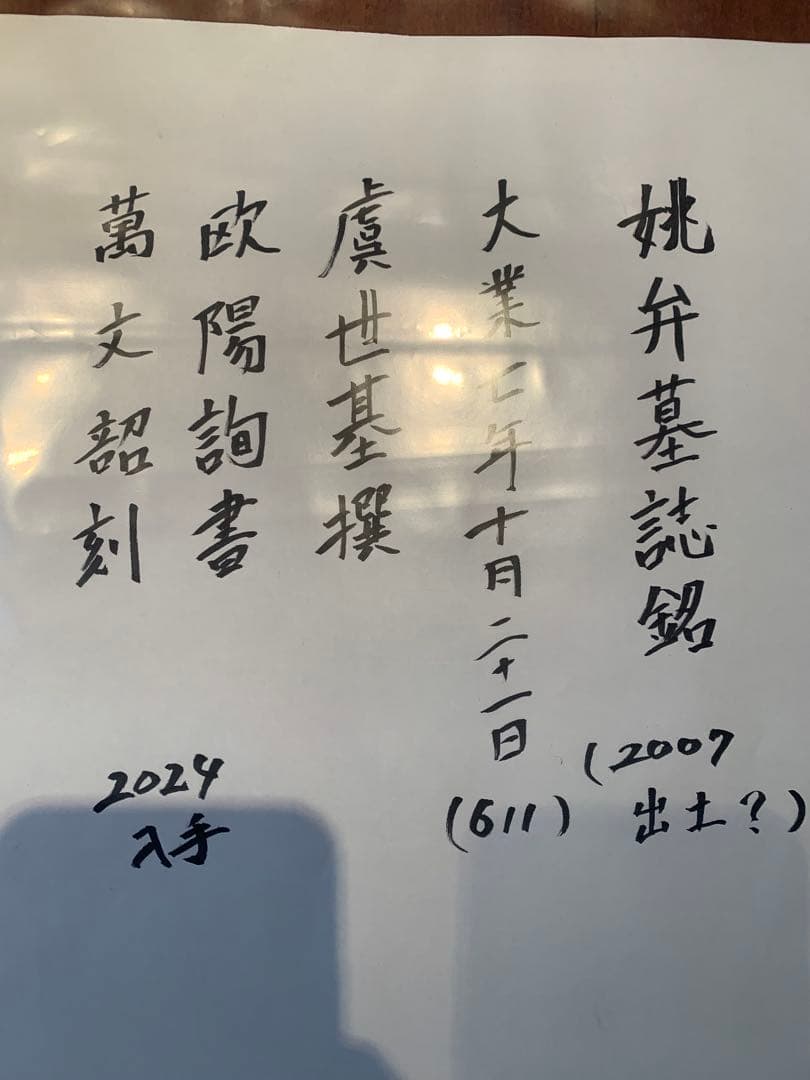 姚弁墓誌銘
(2007
出土?)
大業七年十月二十一日
(611)
虞世基撰
欧陽詢書
萬文韶刻
2024
入手